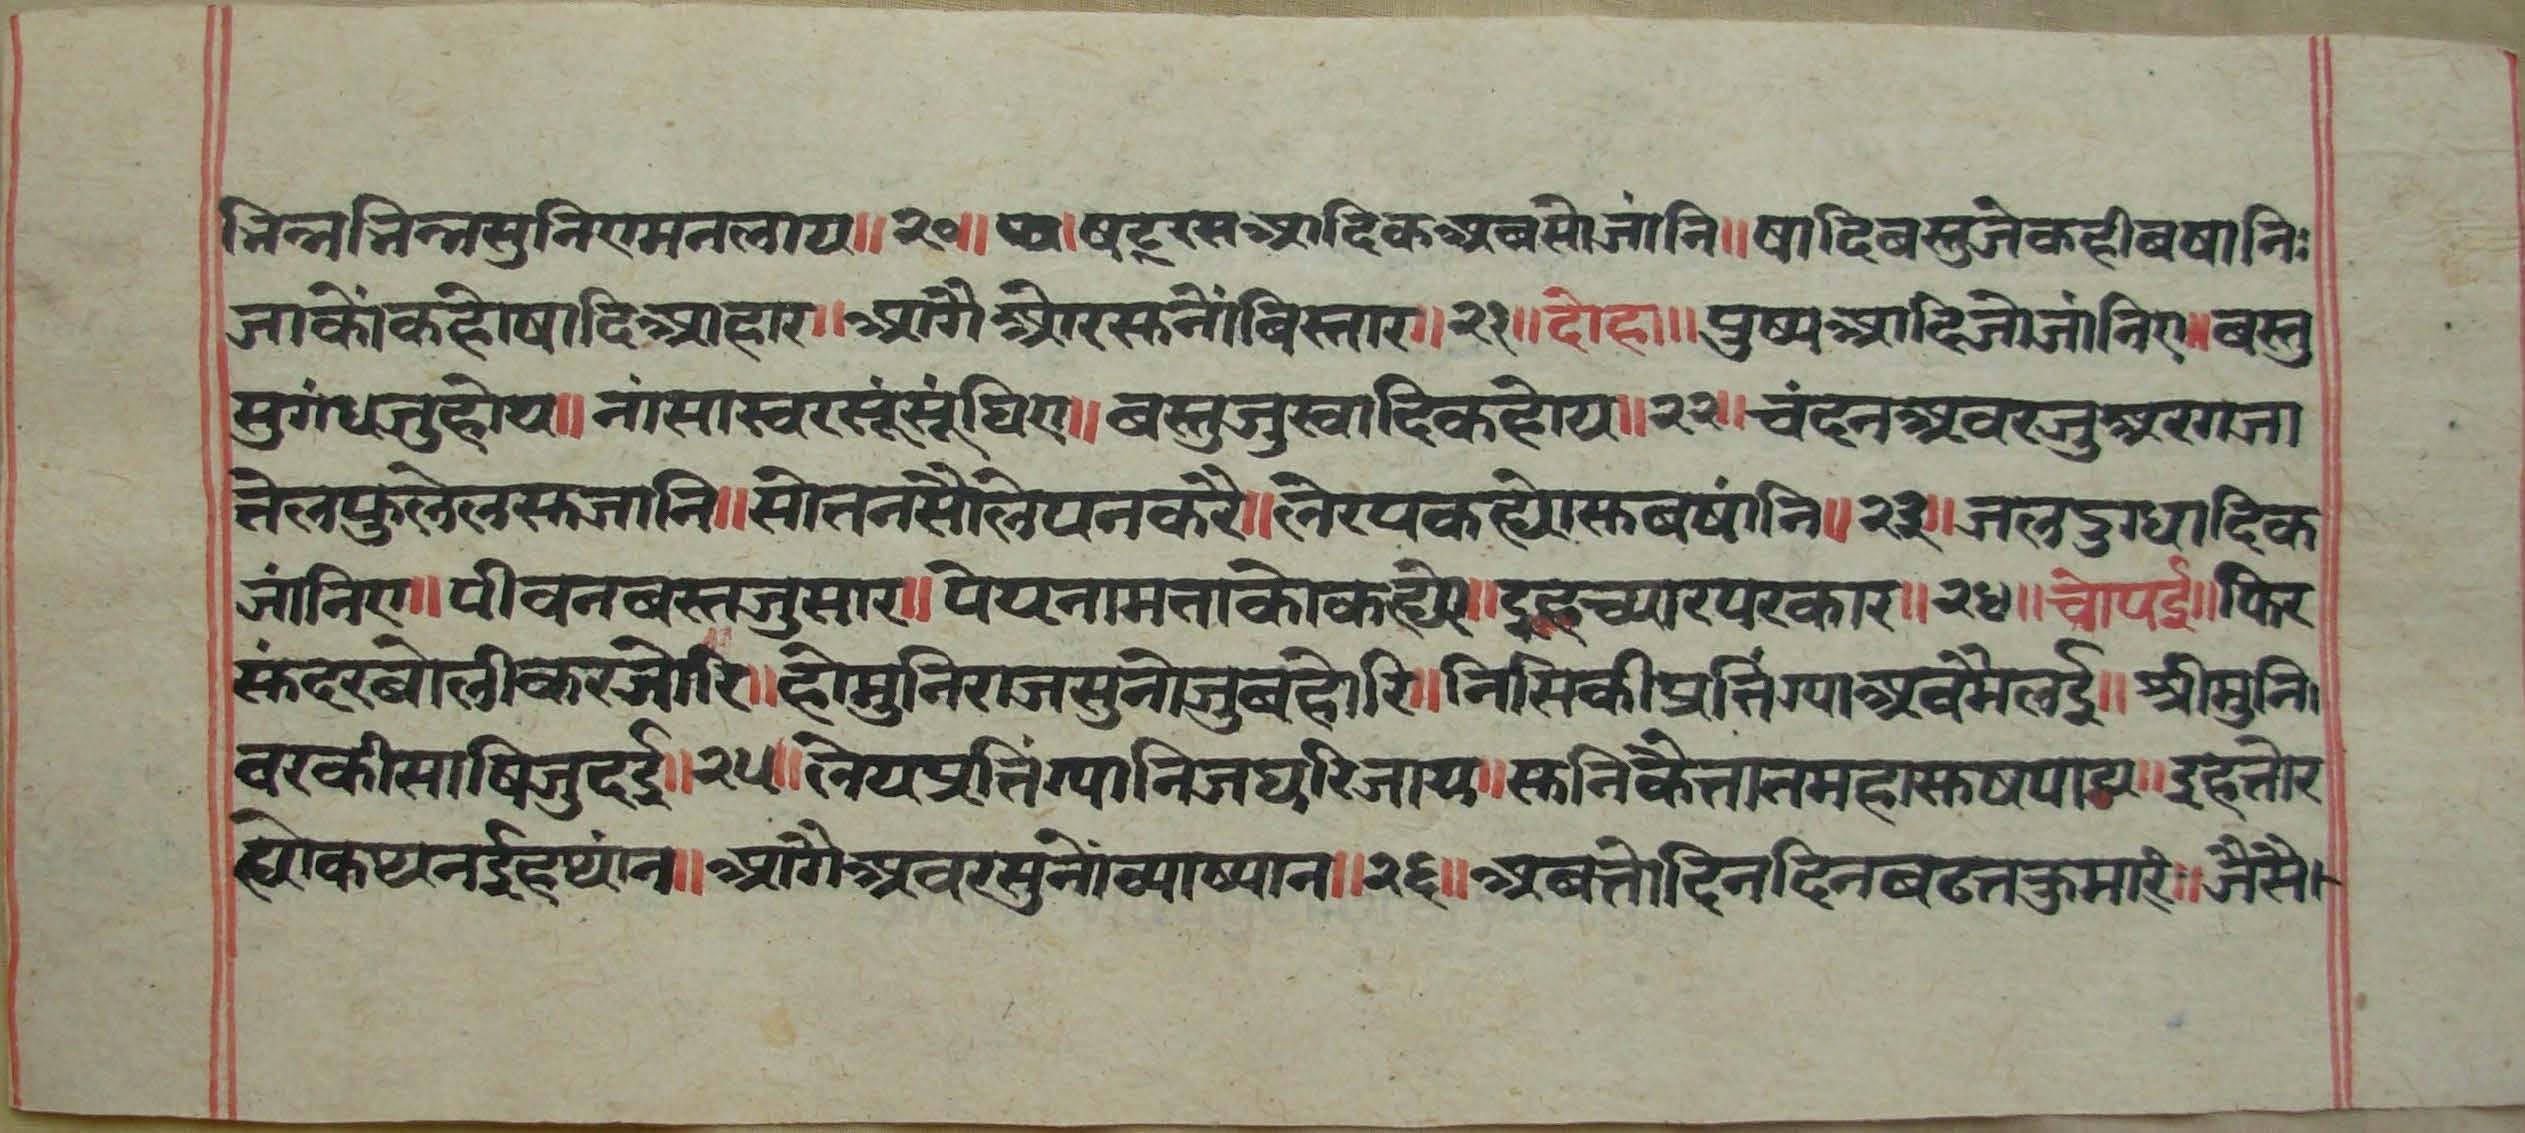 भिन्नभिन्नसुनिएमनलाय॥२०॥ षट्रसआदिकअबसोजांनि॥षादिबस्तुजेकहीबषानि॥
जाकोंकहोषादिआहार॥आगैओरसुनोंबिस्तार॥२१॥दोहा॥पुष्पआदिजोजांनिए॥बस्तु
सुगंधजुहोय॥नांसास्वरसूंसूंघिए॥बस्तुजुस्वादिकहोय॥२२॥चंदनअवरजुअरगजा
तेलफुलेलसुजानि॥सोतनसौलेपनकरै॥लेपकह्योसुबषांनि॥२३॥जलदुग्धादिक
जांनिए॥पीवनबस्तजुसार॥पेयनामताकोकह्यो॥इहच्यारपरकार॥२४॥चोपई॥फिर
सुंदरबोलीकरजोरि॥होमुनिराजसुनोजुबहोरि॥निसिकीप्रतिंग्याअवमैलई॥श्रीमुनि
वरकीसाषिजुदई॥२५॥लेयप्रतिंग्यानिजघरिजाय॥सुनिकैतातमहासुषपाय॥इहतोर
ह्योकथनईहथांन॥आगैअवरसुनोंव्याष्यान॥२६॥अबतोदिनदिनबढतकुमारि॥जैसै